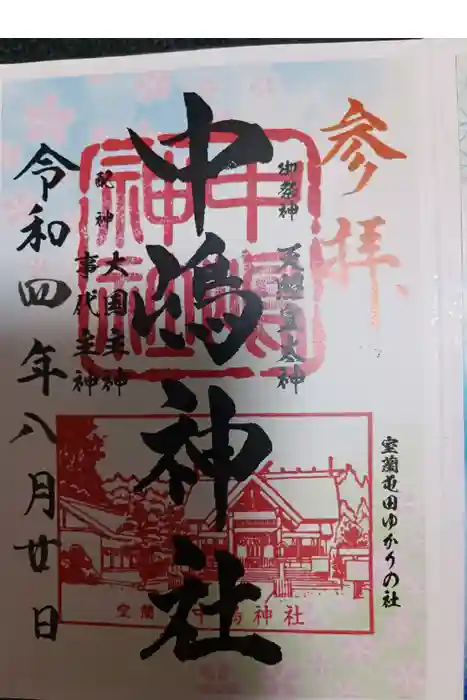 参拝
室蘭亀田ゆかりの社
御祭神
天照皇大神
中嶋神社
中嶋神社
配神
大国主神
事代主神
令和四年八月廿日
室蘭 中嶋神社